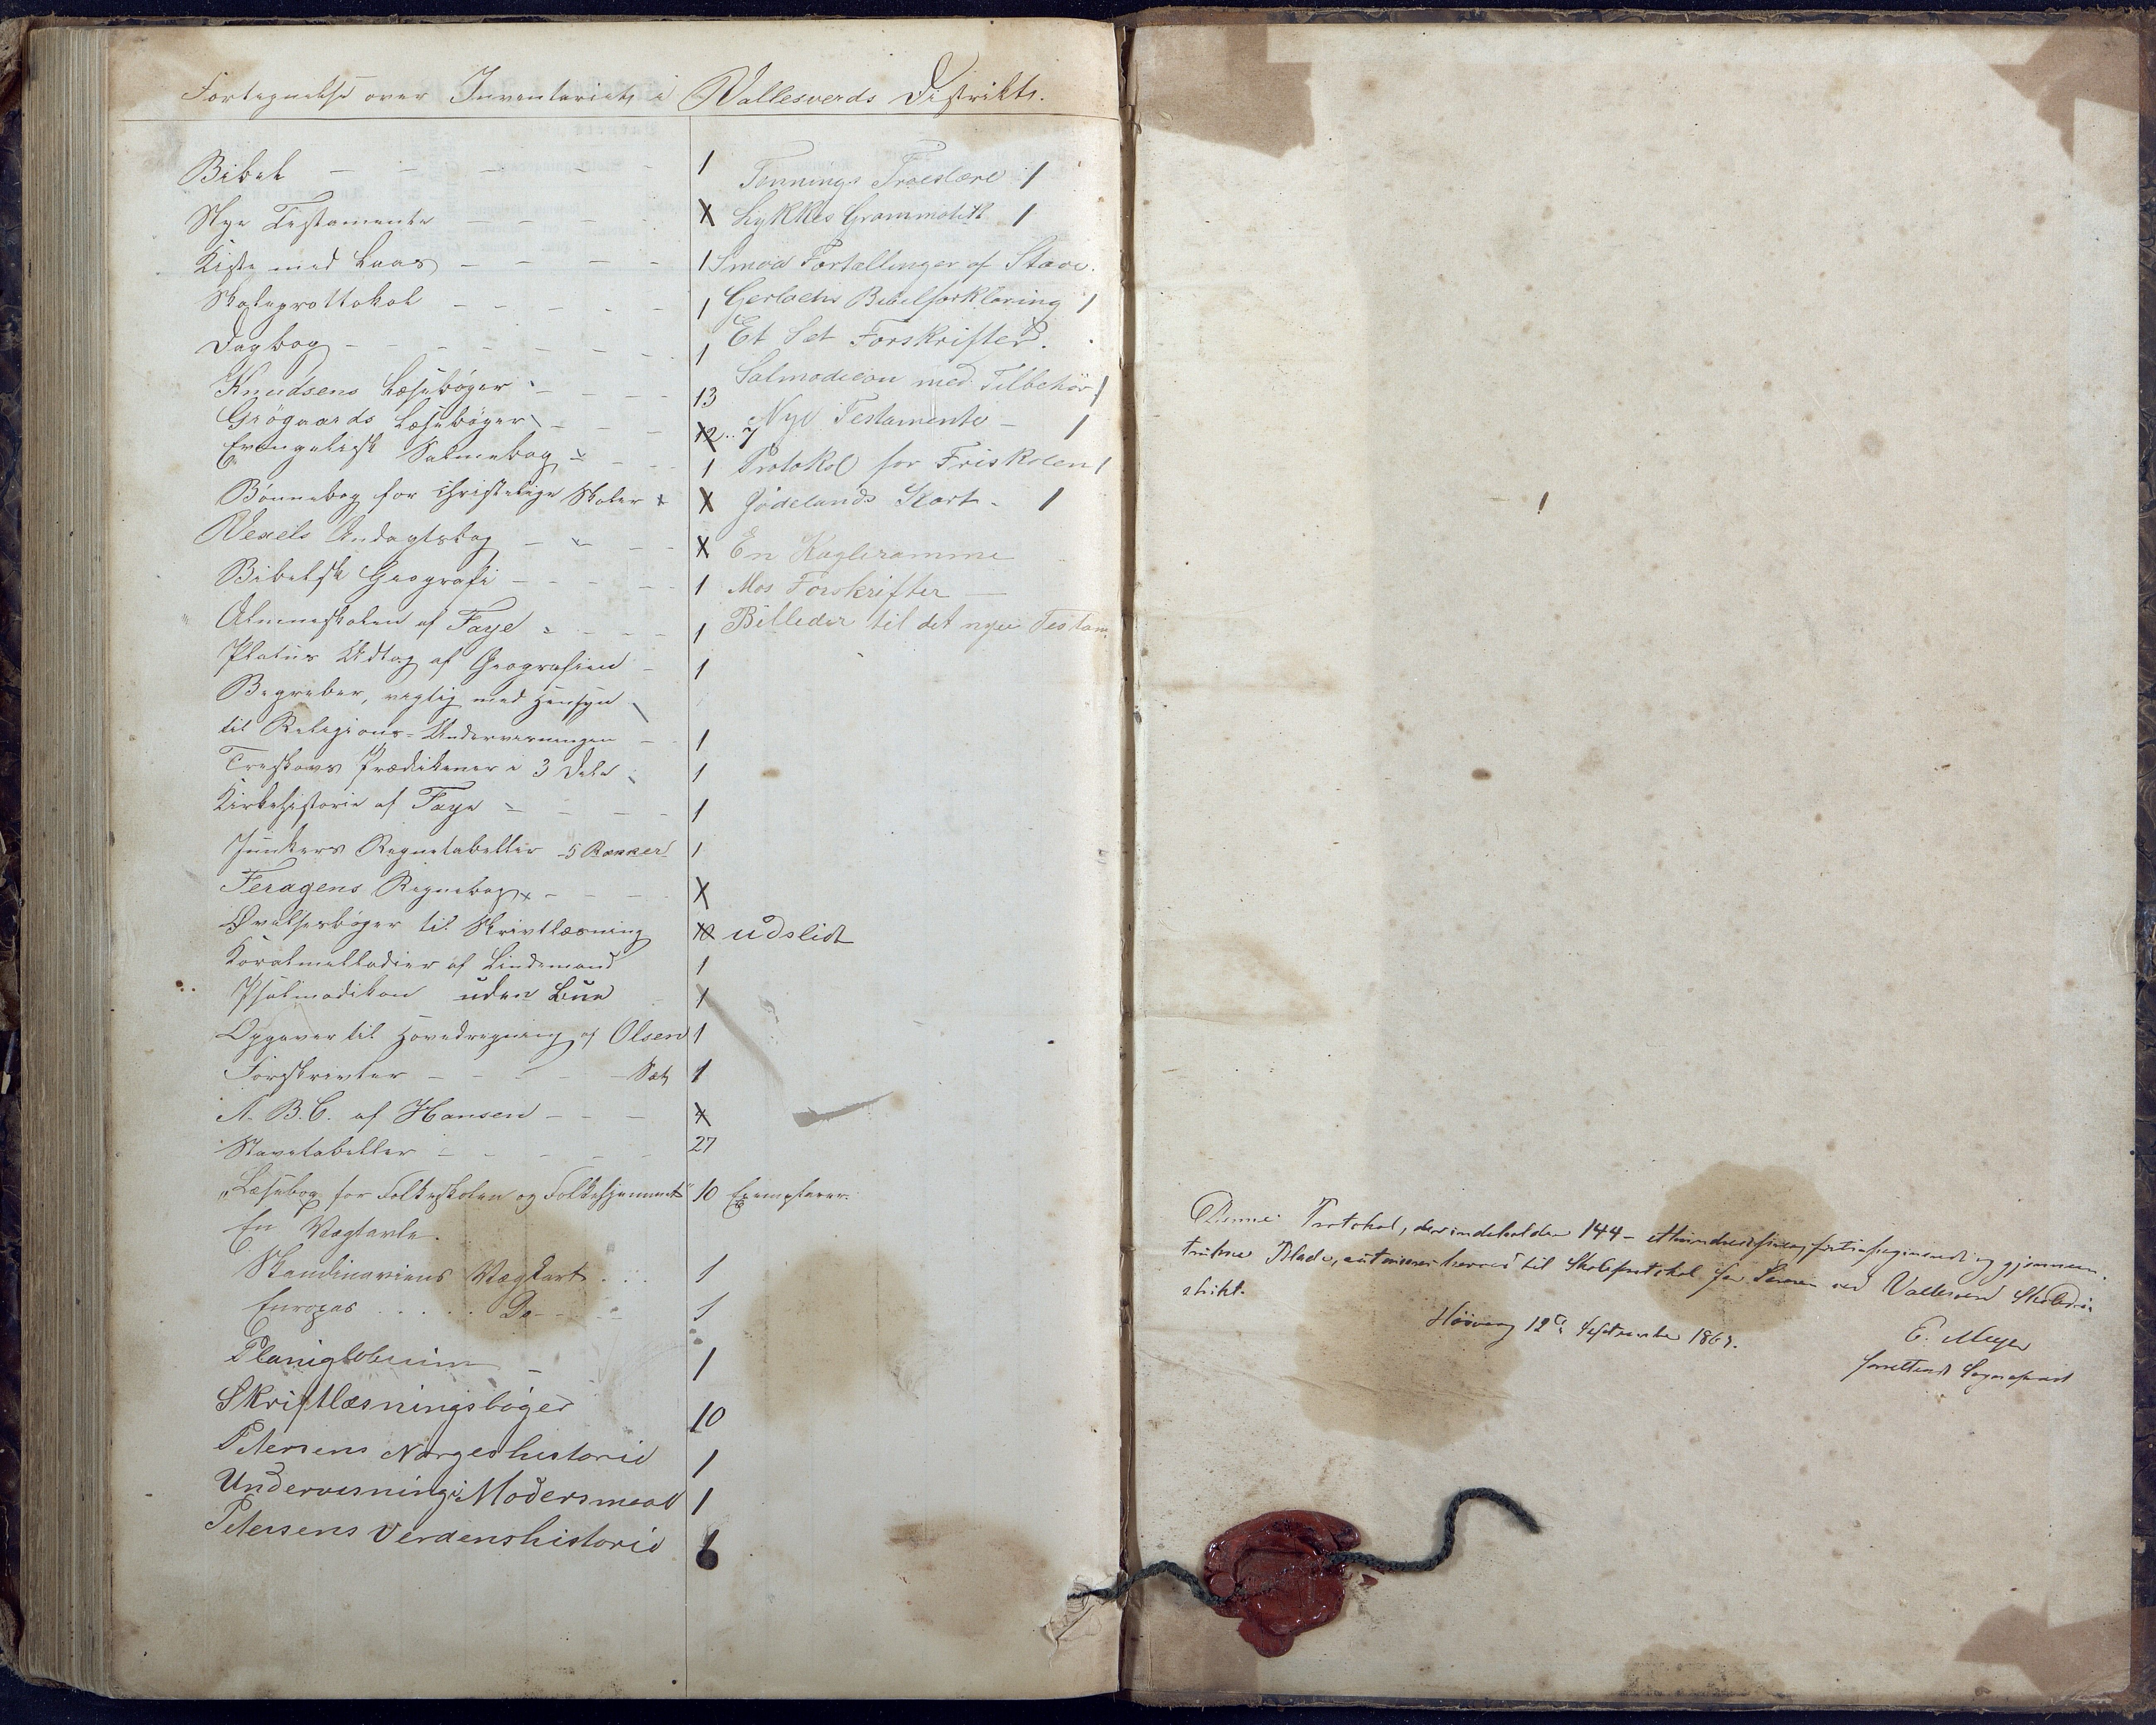 Fortegnelse over Inventariet i Vallesverds Distrikt.
Bibel 1
Nye Testamente X
Kiste med Laas 1
Skoleprottokol 1
Dagbog 1
Knudsens Læsebøger 13
Grögaards Læsebøger 12 .. 7
Evangelisk Salmebog 1
Bönnebog for christelige Skoler X
Wexels Andagtsbog X
Bibelsk Geografi 1
Almueskolen af Faye 1
Platüs Udtog af Geografien 1
Begreber, vigtig med Hensyn
til Religions-Undervisningen 1
Treskows Prædikener i 3 Dele 1
Kirkehistorie af Faye 1
Junkers Regnetabeller 5 Rækker 1
Feragens Regnebog X
Øvelsesbøger til Skrivtlæsning 10 udslidt
Koralmelladier af Lindemand 1
Psalmodikon uden Bue 1
Opgaver til Hovedregning af Olsen 1
Forskrivter Sæt 1
A. B. C. af Hansen 4
Stavetabeller 27
"Læsebog for Folkeskolen og Folkehjemmet" 10 Exemplarer.
En Vægtavle.
Skandinaviens Vægkart 1
Europas Do 1
Planiglobium 1
Skriftlæsningsbøger 10
Petersens Norgeshistorie 1
Undervisning i Modersmaal 1
Petersens Verdenshistorie 1
Tönnings Troeslære 1
Lykkes Grammatik 1
Smaa Fortællinger af Stave.
Gerlachs Bibelforklaring 1
Et Sæt Forskrifter.
Salmodicon med Tilbehör 1
Nye Testamente 1
Protokol for Friskolen 1
Jödelands Kart 1
En Kugleramme
Mos Forskrifter
Billeder til det nye Testam.
Denne Protokol, der indeholder 144 - ethundredefireogførti paginerede og gjennem-
trukne Blade, autoriseres herved til Skoleprotokol for Læreren ved Vallesverd Skoledi-
strikt.
Höivaag 12te September 1867.
E. Meyer
forrettende Sogneprest